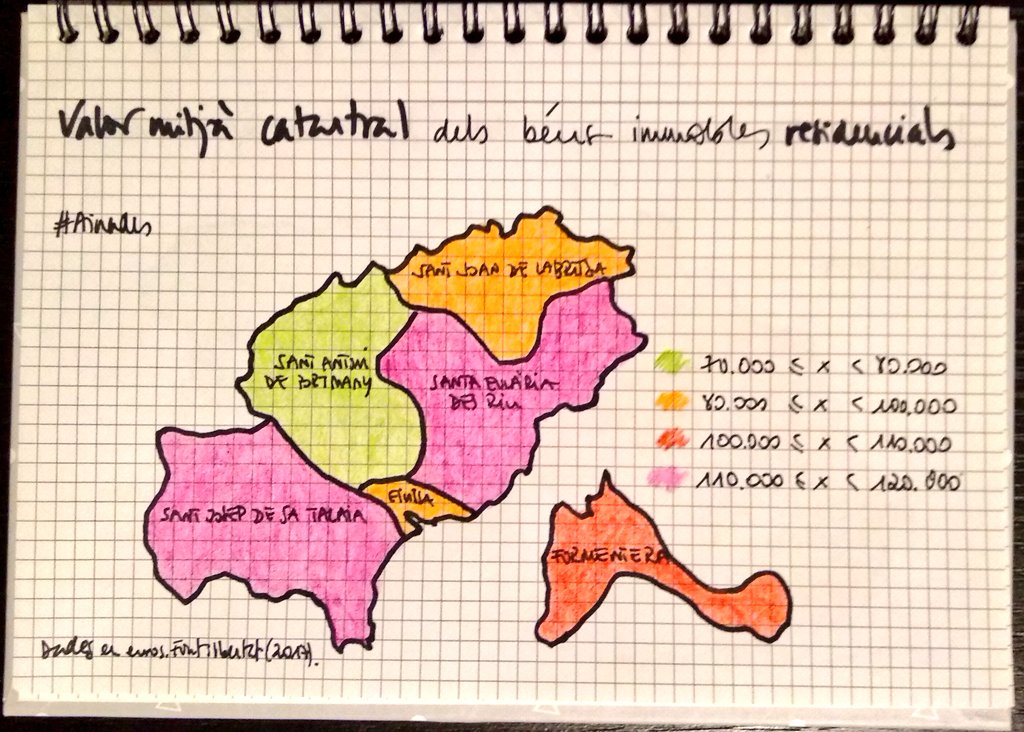 Valor mitjà catastral dels béns immobles residencials
#Ainades
SANT JOAN DE LABRITJA
SANT ANTONI
DE PORTMANY
SANTA EULÀRIA
DES RIU
70.000 ≤ x < 80.000
80.000 ≤ x < 100.000
100.000 ≤ x < 110.000
110.000 ≤ x < 120.000
EIVISSA
SANT JOSEP DE SA TALAIA
FORMENTERA
Dades en euros. Font: Ibestat (2017).